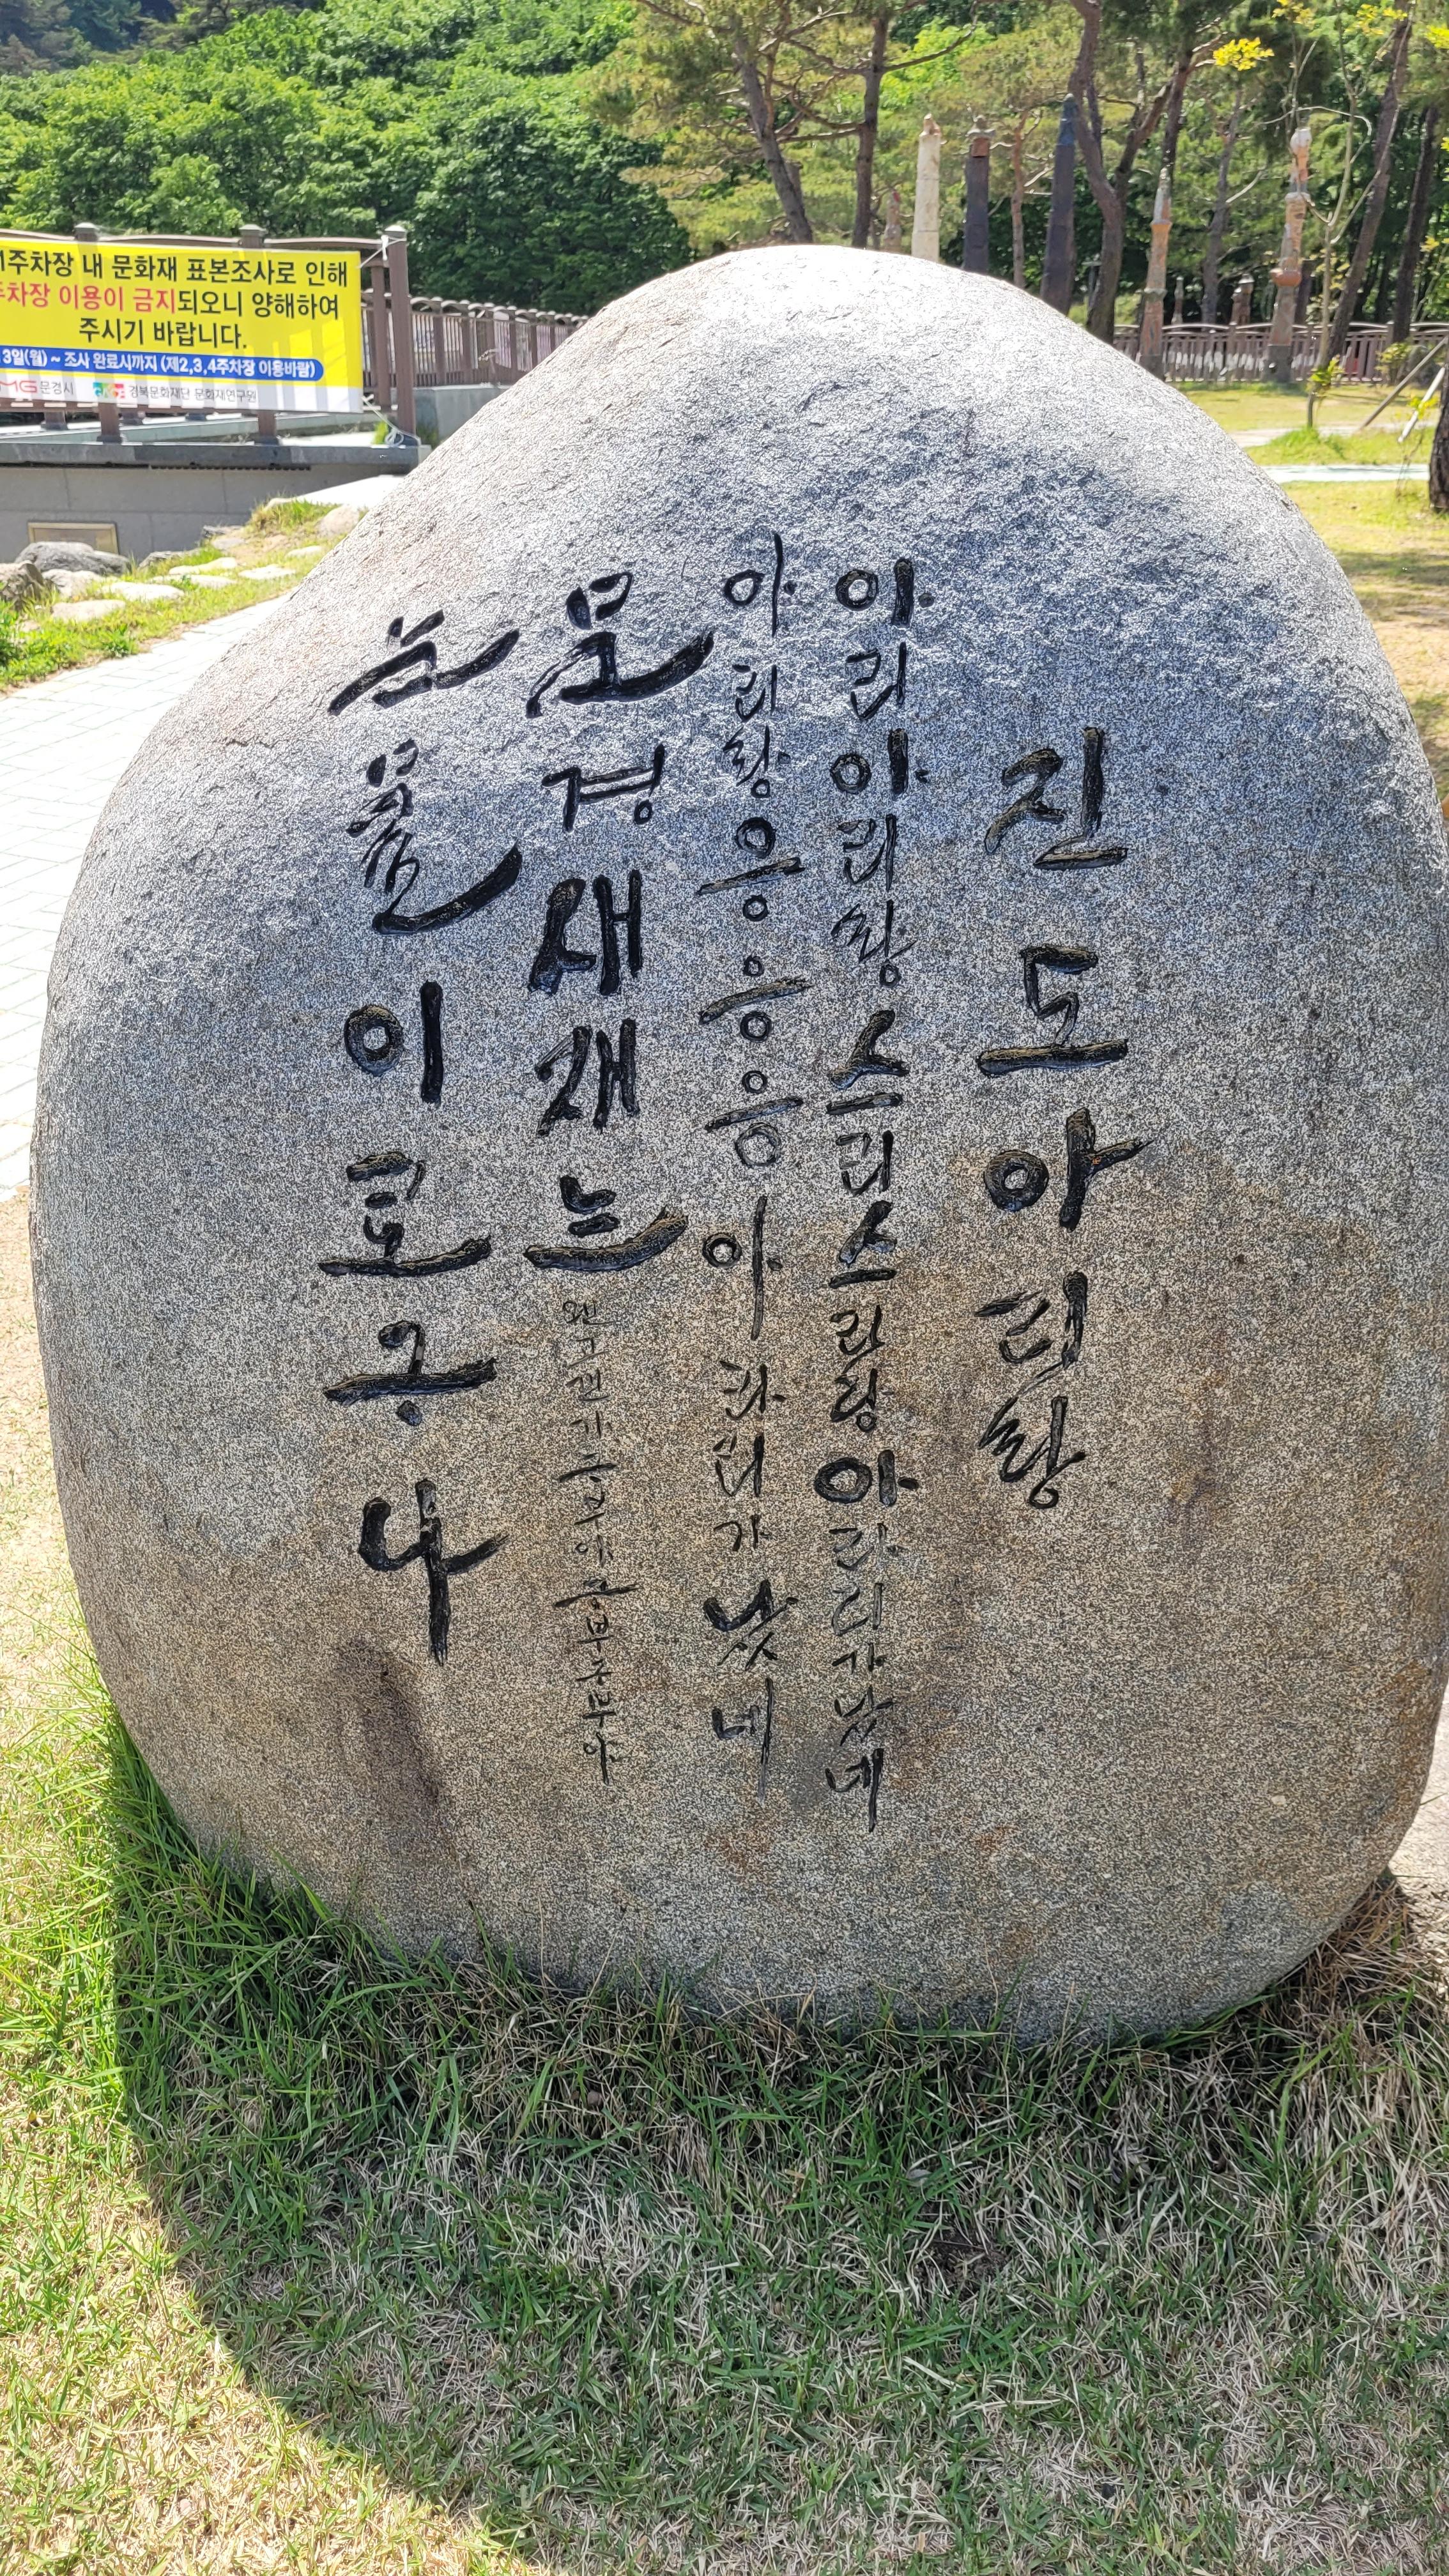 1주차장 내 문화재 표본조사로 인해
주차장 이용이 금지되오니 양해하여
주시기 바랍니다.
3일(월) ~ 조사 완료시까지 (제2,3,4주차장 이용바람)
문경시 경북문화재단 문화재연구원
진도아리랑
아리아리랑스리스라랑아라리가났네
아리랑응응응아라리가낫네
문경새재는웬고갠가구부야구부구부야
눈물이로구나